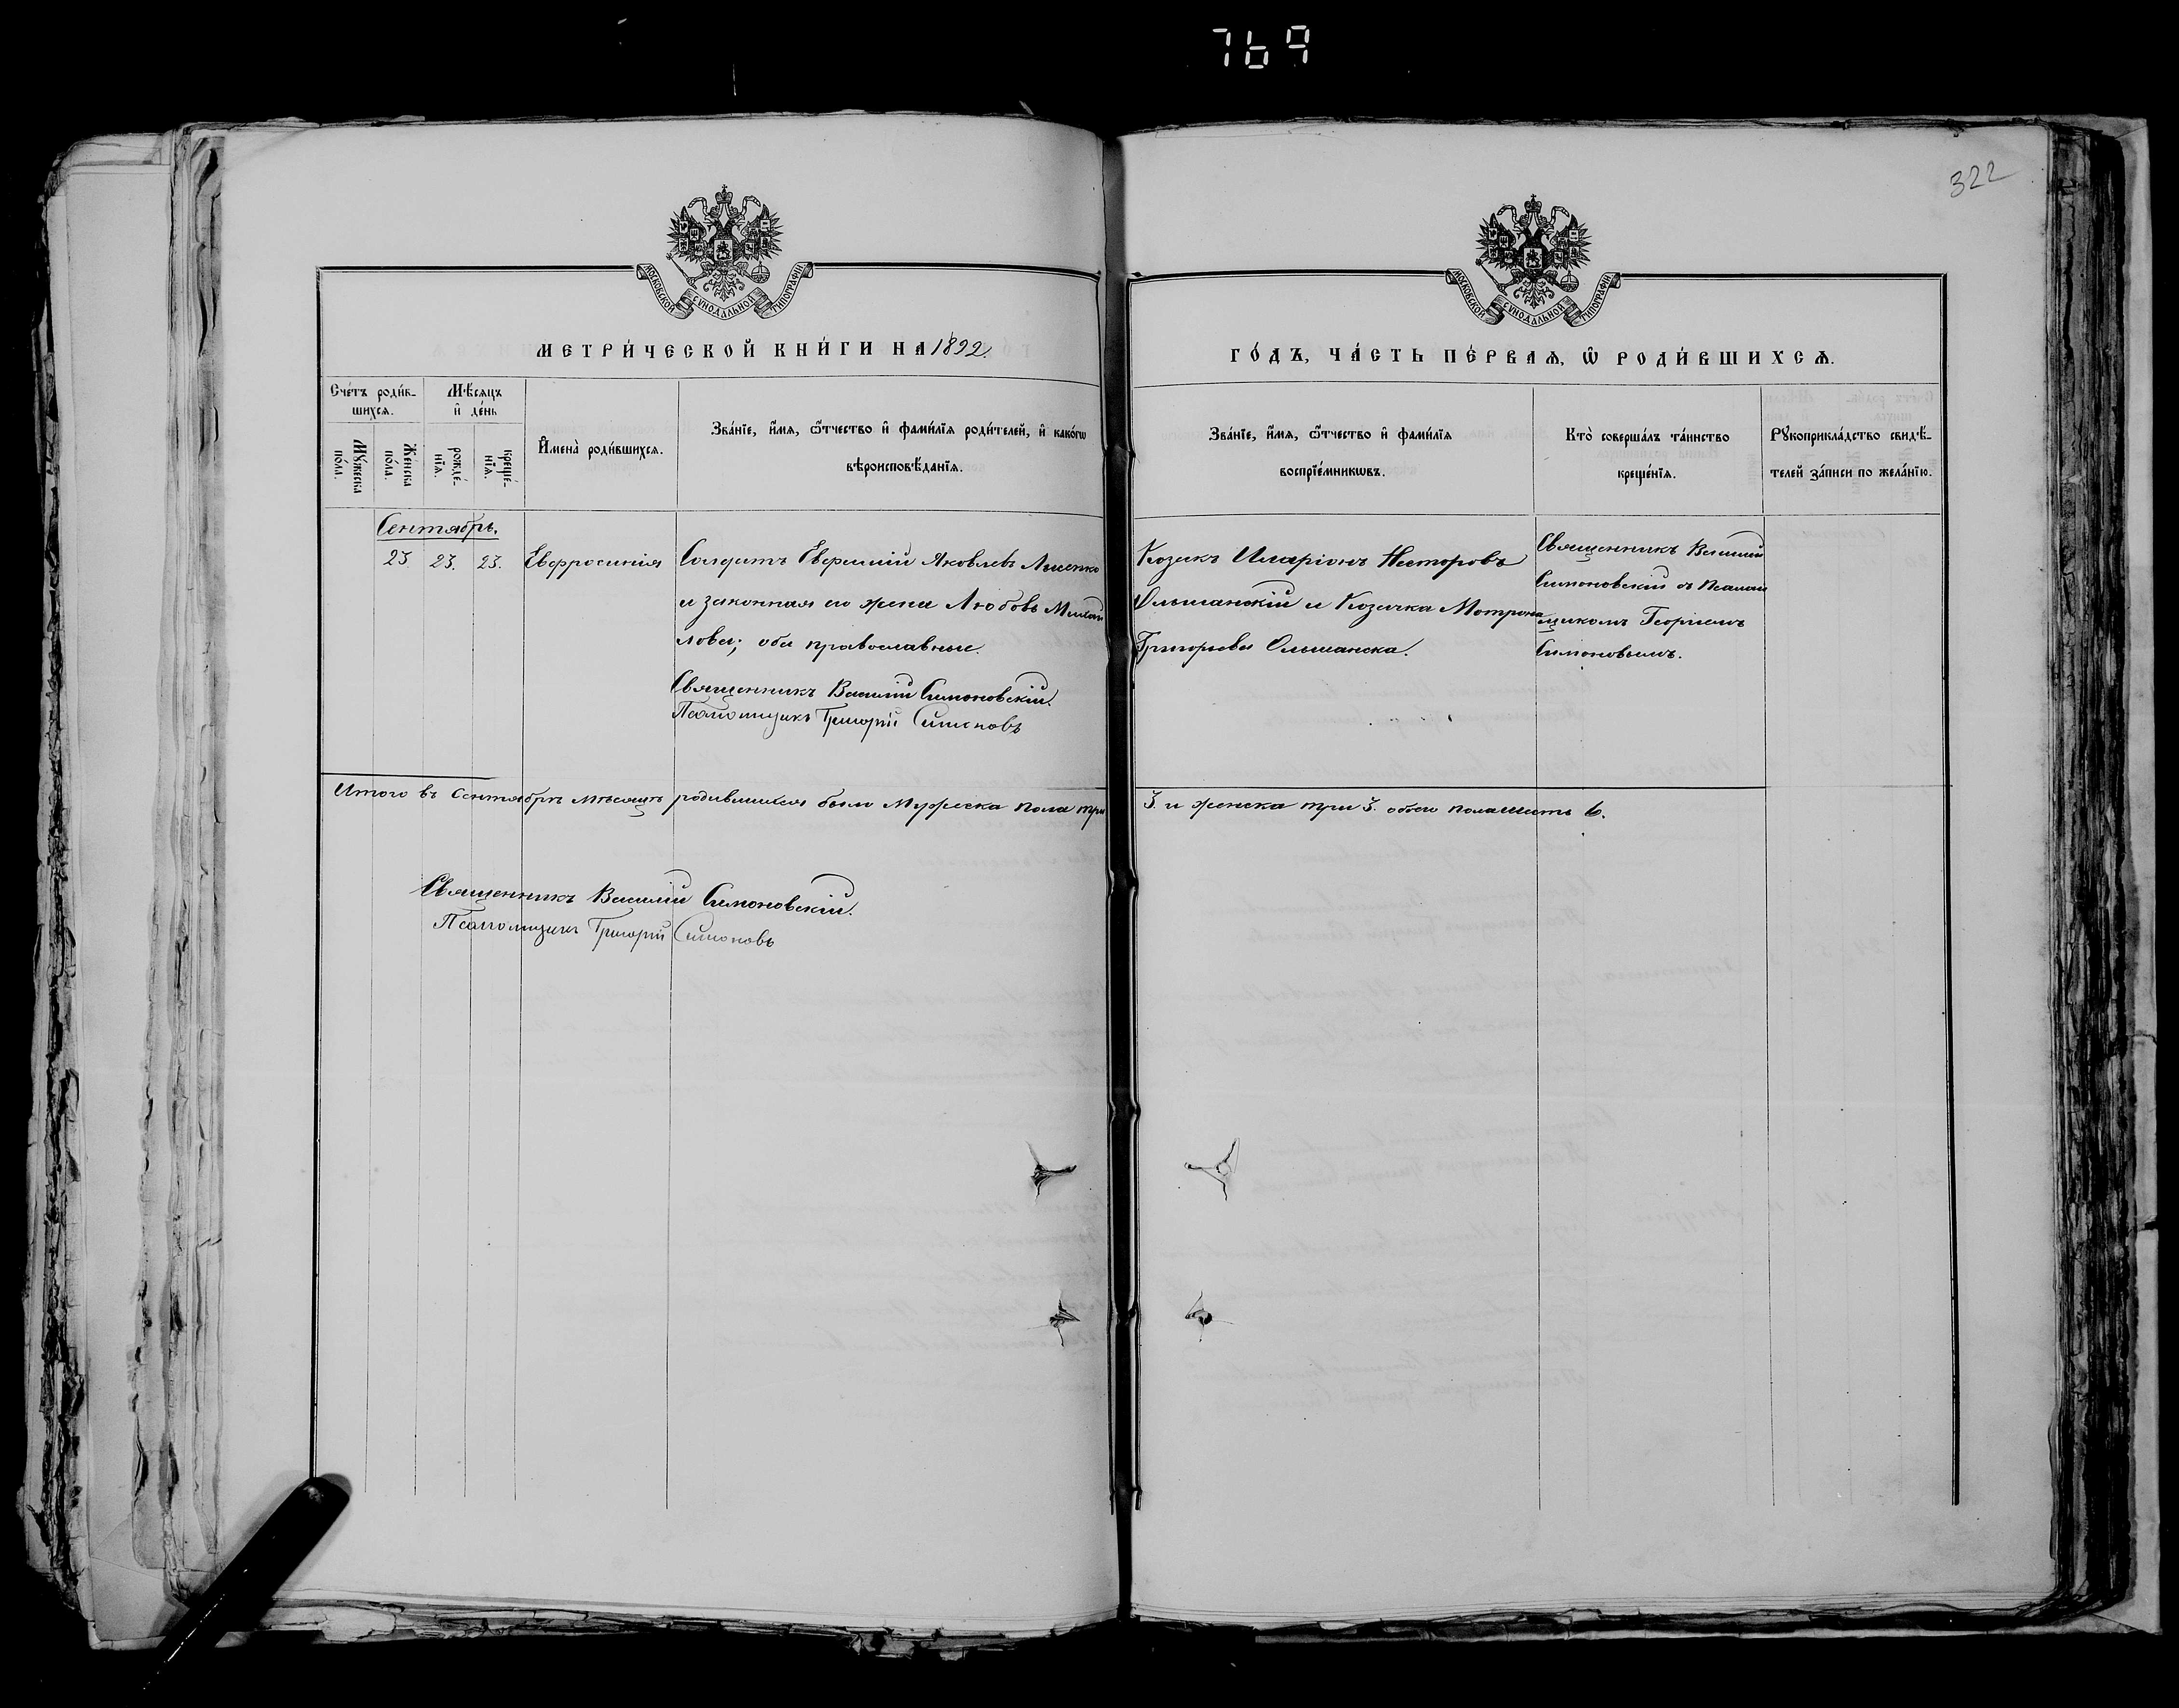 769
322
МОСКОВСКОЙ СѴНОДАЛЬНОЙ ТИПОГРАФІИ
МОСКОВСКОЙ СѴНОДАЛЬНОЙ ТИПОГРАФІИ
МЕТРИ́ЧЕСКОЙ КНИ́ГИ НА 1892.
ГО́ДЪ, ЧА́СТЬ ПЕ́РВАѦ, Ѡ҆ РОДИ́ВШИХСѦ.
Сче́тъ роди́в-
шихсѧ.
Мꙋ́жеска
по́ла.
Же́нска
по́ла.
Мѣ́сѧцъ
и҆ де́нь
рожде́-
нїѧ.
креще́-
нїѧ.
И҆мена̀ роди́вшихсѧ.
Зва́нїе, и҆́мѧ, ѿ́чество и҆ фами́лїѧ роди́телей, и҆ како́гѡ
вѣроисповѣ́данїѧ.
Зва́нїе, и҆́мѧ, ѿ́чество и҆ фами́лїѧ
воспрїе́мникѡвъ.
Кто̀ соверша́лъ та́инство
креще́нїѧ.
Рꙋкоприкла́дство свидѣ́-
телей за́писи по жела́нїю.
Сентябрь.
23 23. 23. Евфросинія
Солдатъ Евфимій Яковлевъ Лысенко
и законная его жена Любовь Михаи
лова; оба православные.
Священникъ Василій Симоновскій.
Псаломщикъ Григорій Симоновъ
Козакъ Иларіонъ Несторовъ
Ольшанскій и Козачка Мотрона
Григорьева Ольшанска.
Священникъ Василій
Симоновскій съ Псалом
щикомъ Георгіемъ
Симоновымъ.
Итого въ Сентябрѣ мѣсяцѣ родившихся было Мужеска пола три
3. и женска три 3. обоего пола шесть 6.
Священникъ Василій Симоновскій.
Псаломщикъ Григорій Симоновъ